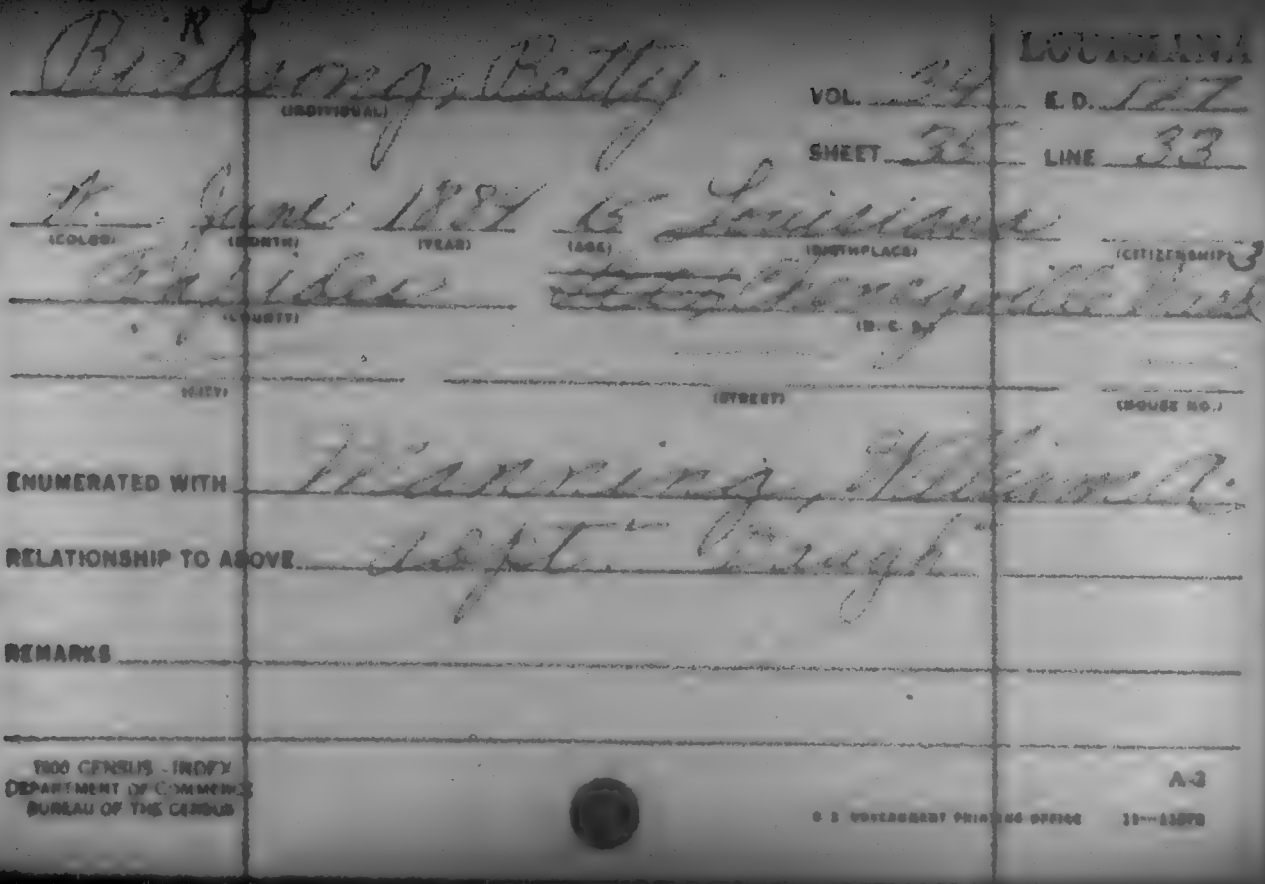 R
Birdsong, Betty
LOUISIANA
(INDIVIDUAL)
VOL. 34 E. D. 127
SHEET 35 LINE 33
W. June 1884 15 Louisiana
(COLOR) (MONTH) (YEAR) (AGE) (BIRTHPLACE) (CITIZENSHIP)
3
(COUNTY) (M. C. D.)
(CITY) (STREET) (HOUSE NO.)
ENUMERATED WITH Manning, William A.
RELATIONSHIP TO ABOVE Step-Daugh-
REMARKS
1900 CENSUS - INDEX
DEPARTMENT OF COMMERCE
BUREAU OF THE CENSUS
A-2
U S GOVERNMENT PRINTING OFFICE